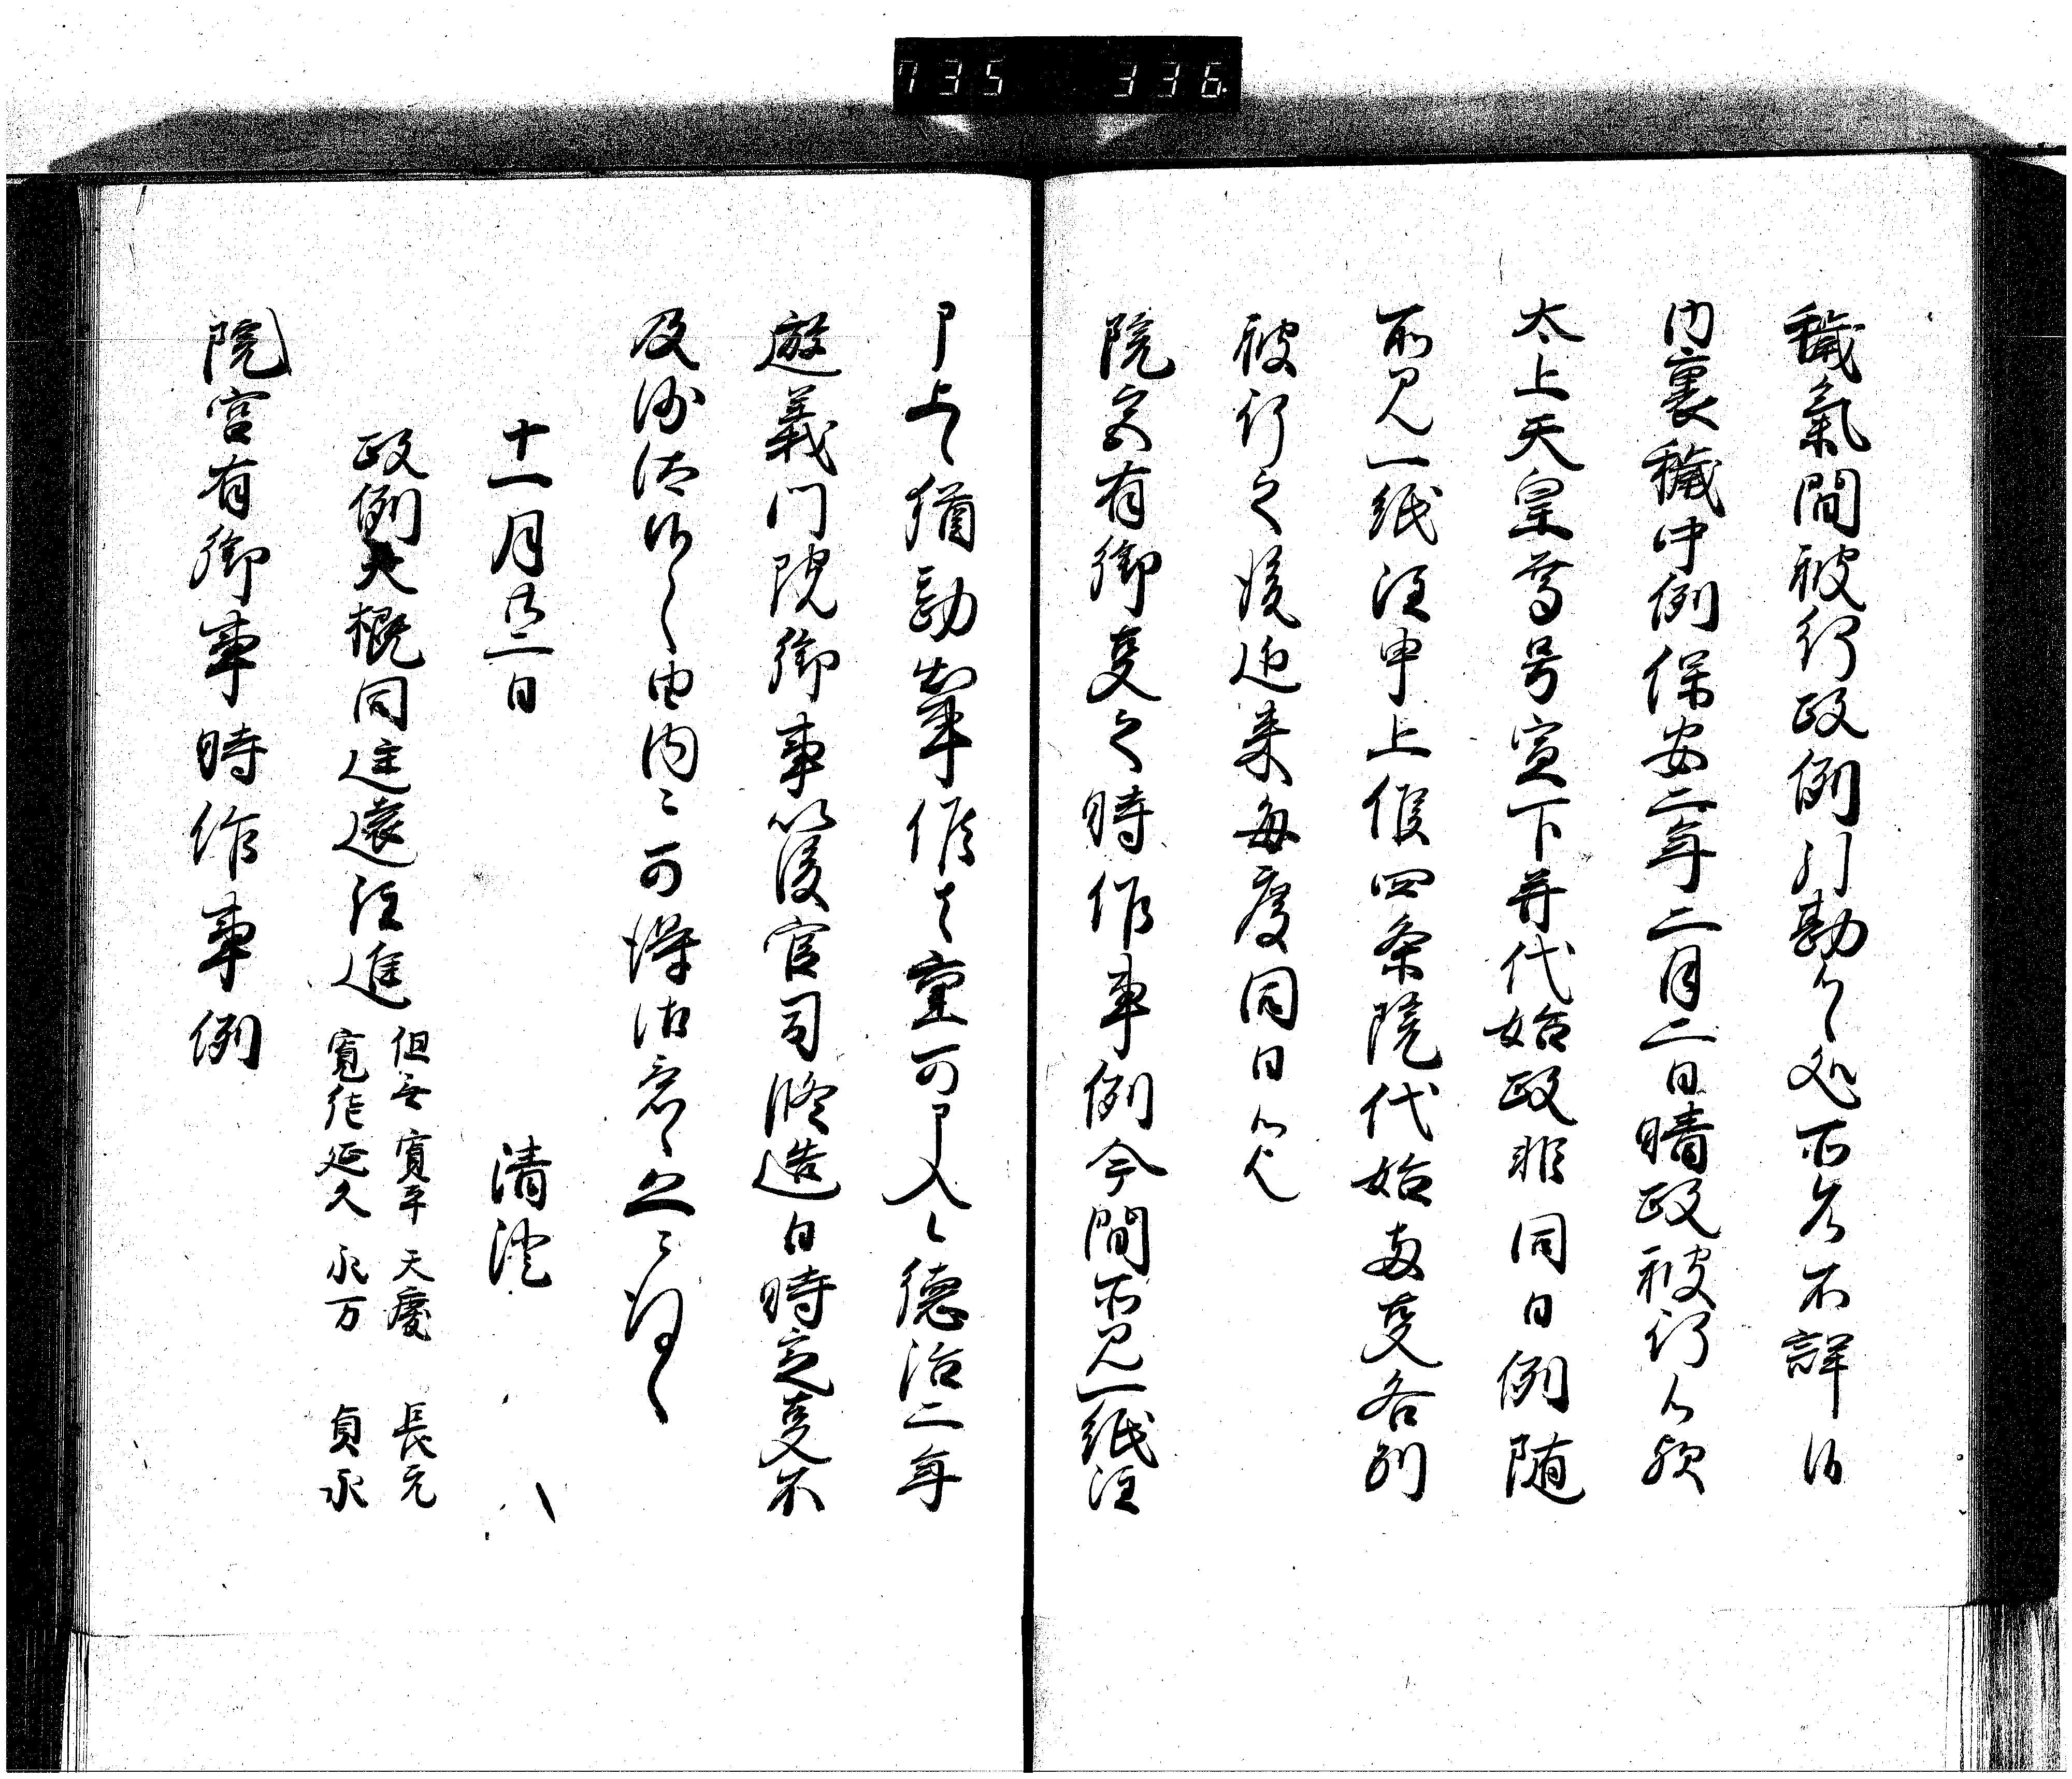 735 336
穢氣間被行政例引勘候之処所答不詳候
内裏穢中例保安二年二月二日晴政被行候歟
太上天皇尊号宣下并代始政非同日例随
所見一紙注申上候四条院代始両事各別
被行之後近来毎度同日候
院宮有御事之時作事例今間所見一紙注
申上候猶勘出事候者重可申入候徳治二年
遊義門院御事以後官司修造日時定事不
及沙汰候之由内々可得御意候
十一月廿二日 清澄
政例大概同進遠注進 但無 寛平 天慶 長元
寛徳 延久 承万 貞永
院宮有御事時作事例